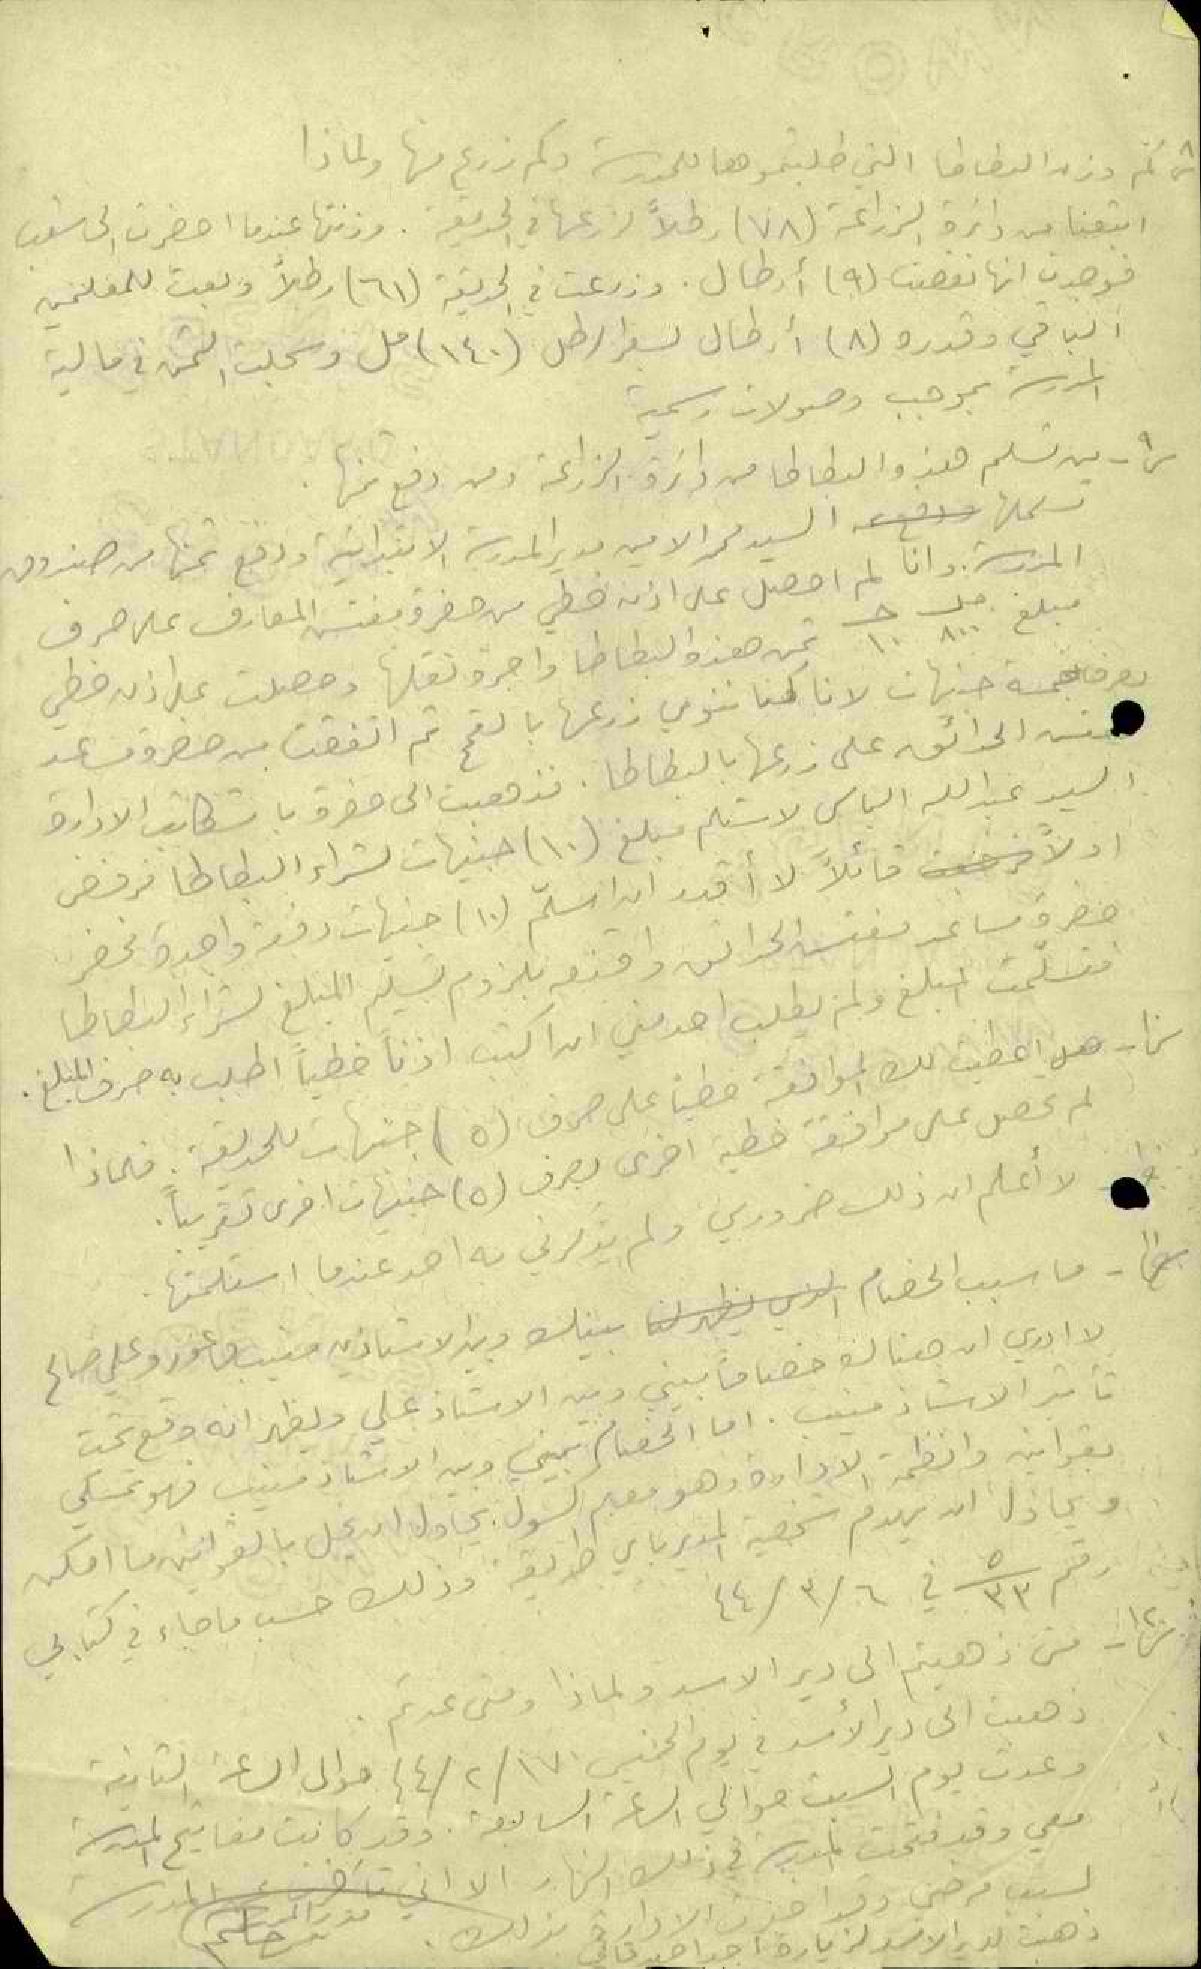 كم وزن البطاطا التي طلبتموها للمدرسة وكم زرع منها ولماذا
ابتعنا من دائرة الزراعة (٧٨) رطلاً لزرعها في الحديقة. وزنتها عندما احضرت الى
فوجدت انها نقصت (٩) أرطال. وزرعت في الحديقة (٦١) رطلاً وبعت للمعلمين
الباقي وقدره (٨) أرطال بسعر الرطل (١٤٠) مل وسجلت الثمن في مالية
المدرسة بموجب وصولات رسمية
س٩- من تسلم هذه البطاطا من دائرة الزراعة ومن دفع ثمنها.
تسلمها السيد محمد الامين مدير المدرسة الابتدائية ودفع ثمنها من صندوق
المدرسة. وانا لم احصل على اذن خطي من حضرة مفتش المعارف على صرف
مبلغ مل ٨٠٠ ج ١٠ ثمن هذه البطاطا واجرة نقلها وحصلت على اذن خطي
بصرف خمسة جنيهات لاننا كنا ننوي زرعها بالقمح ثم اتفقت مع حضرة مساعد
مفتش الحدائق على زرعها بالبطاطا. فذهبت الى حضرة باشكاتب الادارة
السيد عبد الله الياس لاستلم مبلغ (١٠) جنيهات لشراء البطاطا فرفض
اولاً قائلاً لا أقدر ان اسلّم (١٠) جنيهات دفعة واحدة فحضر
حضرة مساعد مفتش الحدائق واقنعه بلزوم تسليم المبلغ لشراء البطاطا
فتسلّمت المبلغ ولم يطلب احد مني ان اكتب اذناً خطياً اطلب به صرف المبلغ.
س١٠- هل اعطيت لك الموافقة خطياً على صرف (٥) جنيهات للحديقة. فلماذا
لم تحصل على موافقة خطية اخرى بصرف (٥) جنيهات اخرى تقريباً.
لا أعلم ان ذلك ضروري ولم يذكرني به احد عندما استلمتها.
س١١- ما سبب الخصام الذي يظهر لنا بينك وبين الاستاذين منيب وعلي صالح
لا ادري ان هنالك خصاماً بيني وبين الاستاذ علي ويظهر انه وقع تحت
تأثير الاستاذ منيب. اما الخصام بيني وبين الاستاذ منيب فهو تمسكي
بقوانين وانظمة الادارة وهو معلم كسول يحاول ان يخل بالقوانين ما امكن
ويحاول ان يهدم شخصية المدير باي طريقة وذلك حسب ما جاء في كتابي
رقم ٥/٣٣ في ٦/٣/٤٤
س١٢- متى ذهبتم الى دير الاسد ولماذا ومتى عدتم.
ذهبت الى دير الأسد في يوم الخميس ١٧/٢/٤٤ حوالي الساعة الثانية
وعدت يوم السبت حوالي الساعة السابعة. وقد كانت مفاتيح المدرسة
معي وقد فتحت المدرسة في ذلك النهار الا اني
لسبب مرضي وقد اخبرت الادارة بذلك.
ذهبت لدير الاسد لزيارة احد
مدير المدرسة